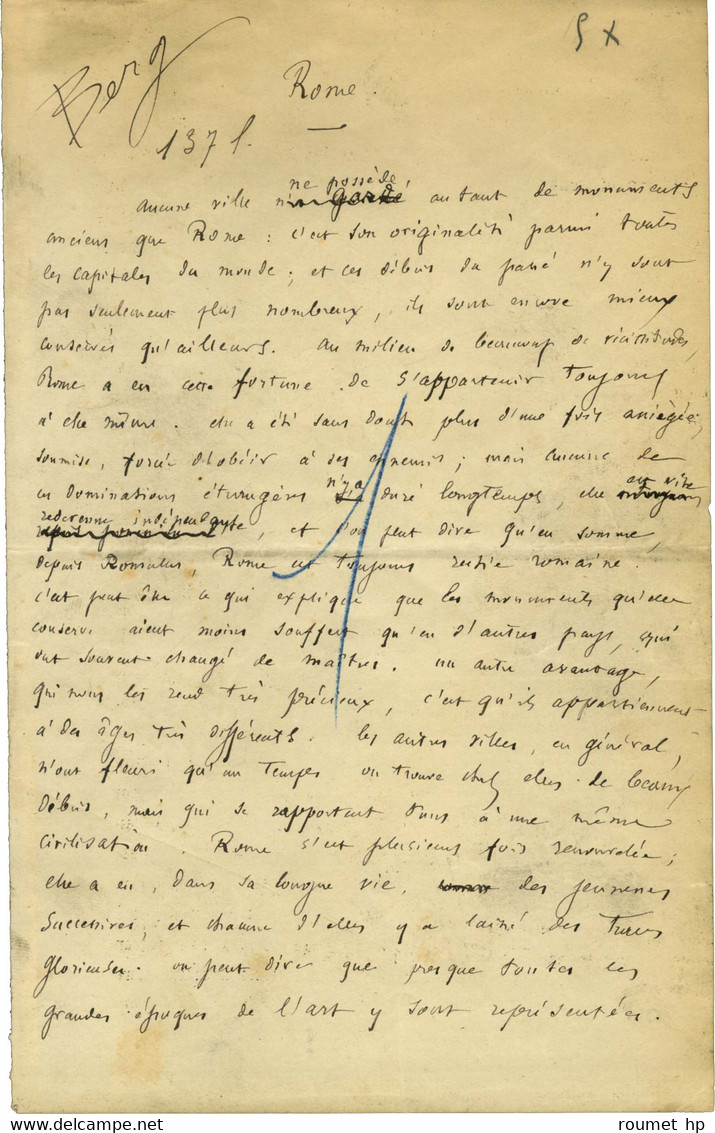 5 x
Berg
Rome.
137 l.
ne possède
aucune ville n'a gardé autant de monuments
anciens que Rome : c'est son originalité parmi toutes
les capitales du monde ; et ces débris du passé n'y sont
pas seulement plus nombreux, ils sont encore mieux
conservés qu'ailleurs. Au milieu de beaucoup de vicissitudes,
Rome a eu cette fortune de s'appartenir toujours
à elle même. elle a été sans doute plus d'une fois assiégée,
soumise, forcée d'obéir à ses ennemis ; mais aucune de
n'y a
ces dominations étrangères duré longtemps, elle
est vite
redevenue indépendante, et l'on peut dire qu'en somme,
depuis Romulus, Rome est toujours restée romaine.
c'est peut être ce qui explique que les monuments qu'elle
conserve aient moins souffert qu'en d'autres pays, qui
ont souvent changé de maîtres. un autre avantage,
qui nous les rend très précieux, c'est qu'ils appartiennent
à des âges très différents. les autres villes, en général,
n'ont fleuri qu'un temps on trouve chez elles de beaux
débris, mais qui se rapportent tous à une même
civilisation. Rome s'est plusieurs fois renouvelée ;
elle a eu, dans sa longue vie, des jeunesses
successives, et chacune d'elles y a laissé des traces
glorieuses. on peut dire que presque toutes les
grandes époques de l'art y sont représentées.
roumet hp